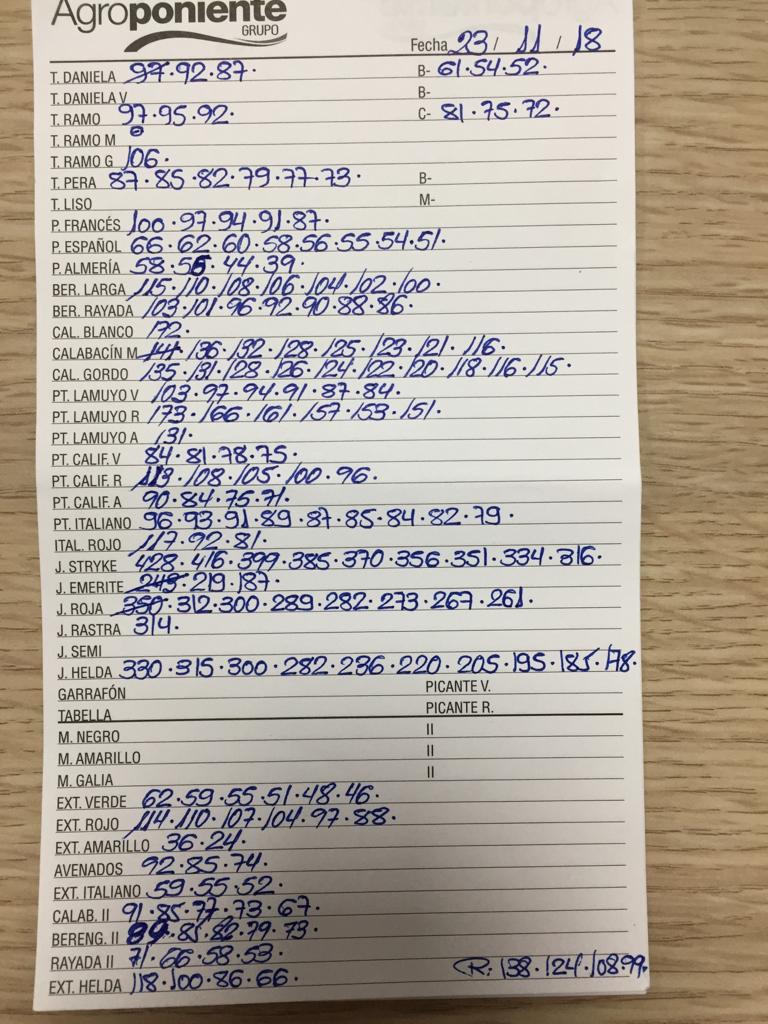 Agroponiente
GRUPO
Fecha 23 / 11 / 18
T. DANIELA 97.92.87. B- 61.54.52.
T. DANIELA V B-
T. RAMO 97.95.92. C- 81.75.72.
T. RAMO M
T. RAMO G 106.
T. PERA 87.85.82.79.77.73. B-
T. LISO M-
P. FRANCÉS 100.97.94.91.87.
P. ESPAÑOL 66.62.60.58.56.55.54.51.
P. ALMERÍA 58.55.44.39.
BER. LARGA 115.110.108.106.104.102.100.
BER. RAYADA 103.101.96.92.90.88.86.
CAL. BLANCO 172.
CALABACÍN M 141.136.132.128.125.123.121.116.
CAL. GORDO 135.131.128.126.124.122.120.118.116.115.
PT. LAMUYO V 103.97.94.91.87.84.
PT. LAMUYO R 173.166.161.157.153.151.
PT. LAMUYO A 131.
PT. CALIF. V 84.81.78.75.
PT. CALIF. R 113.108.105.100.96.
PT. CALIF. A 90.84.75.71.
PT. ITALIANO 96.93.91.89.87.85.84.82.79.
ITAL. ROJO 117.92.81.
J. STRYKE 428.416.399.385.370.356.351.334.316.
J. EMERITE 245.219.187.
J. ROJA 350.312.300.289.282.273.267.261.
J. RASTRA 314.
J. SEMI
J. HELDA 330.315.300.282.236.220.205.195.185.178.
GARRAFÓN PICANTE V.
TABELLA PICANTE R.
M. NEGRO II
M. AMARILLO II
M. GALIA II
EXT. VERDE 62.59.55.51.48.46.
EXT. ROJO 114.110.107.104.97.88.
EXT. AMARILLO 36.24.
AVENADOS 92.85.74.
EXT. ITALIANO 59.55.52.
CALAB. II 91.85.77.73.67.
BERENG. II 89.85.82.79.73.
RAYADA II 71.66.58.53.
EXT. HELDA 118.100.86.66. R: 138.124.108.99.